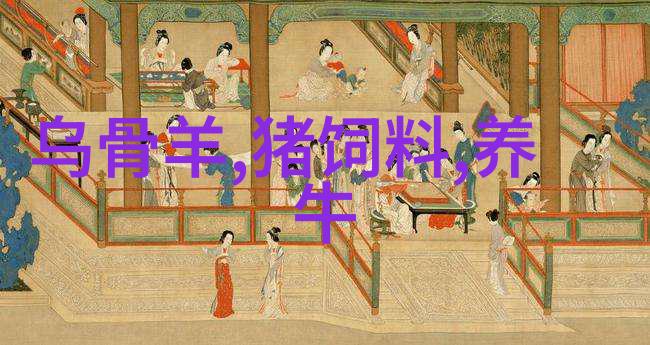 乌骨羊,猪饲料,养
牛